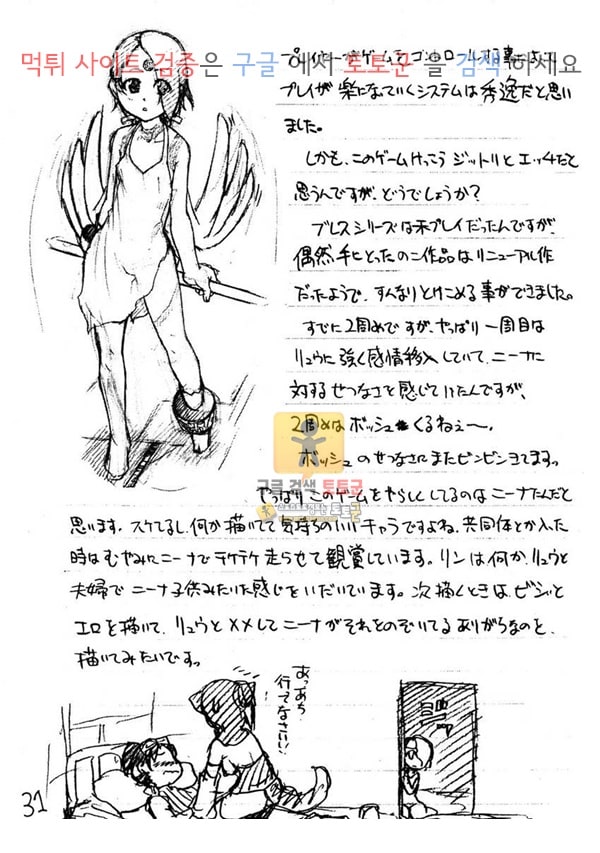 먹튀 사이트 검증은 구글 에서 토토군 을 검색 하세요
プレイヤーがゲームをコントロールする事によって
プレイが楽になっていくシステムは秀逸だと思い
ました。
しかも、このゲームけっこうジットリとエッチだと
思うんですが、どうでしょうか？
ブレスシリーズは未プレイだったんですが、
偶然手にとったのこ作品はリニューアル作
だったようで、すんなりとけこめる事ができました。
すでに2周めですが、やっぱり一周目は
リュウに強く感情移入していて、ニーナに
対するせつなさを感じていたんですが、
2周めはボッシュくるねぇ〜。
ボッシュのせつなさにまたビンビンきてますっ
구글 검색 토토군
やっぱりこのゲームをやらしくしてるのはニーナなんだと
思います。スケてるし、何か描いてて気持ちのいいキャラですよね、共同体とか入った
時はむやみにニーナでテケテケ走らせて観賞しています。リンは何か、リュウと
夫婦でニーナ子供みたいな感じをいだいています。次描くときは、ビシッと
エロを描いて、リュウと××してニーナがそれをのぞいてるありがちなのを、
描いてみたいですっ
あっあち
行てなさい！
31